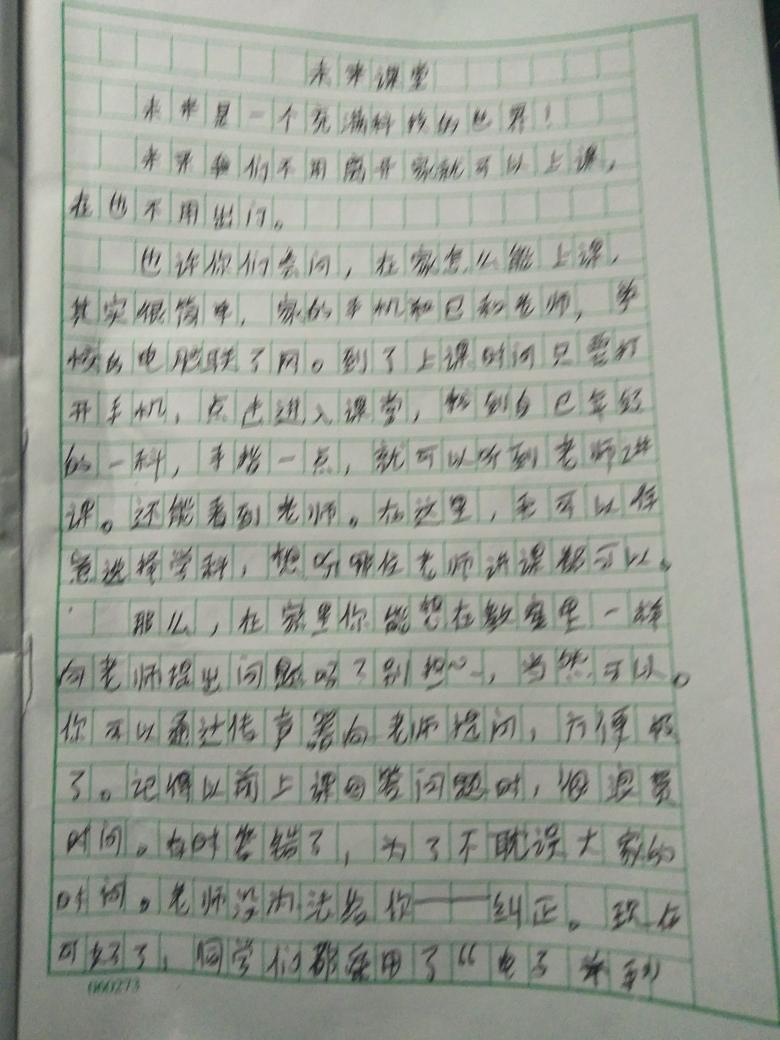 未来课堂
未来是一个充满科技的世界！
未来我们不用离开家就可以上课，
在也不用出门。
也许你们会问，在家怎么能上课，
其实很简单，家的手机和已和老师，学
校的电脑联了网。到了上课时间只要打
开手机，点击进入课堂，找到自己年级
的一科，手指一点，就可以听到老师讲
课。还能看到老师。在这里，我可以任
意选择学科，想听哪位老师讲课都可以。
那么，在家里你能想在教室里一样
向老师提出问题吗？别担心，当然可以。
你可以通过传声器向老师提问，方便极
了。记得以前上课回答问题时，很浪费
时间。有时答错了，为了不耽误大家的
时间。老师没办法给你一一纠正。现在
可好了，同学们都采用了“电子
060273